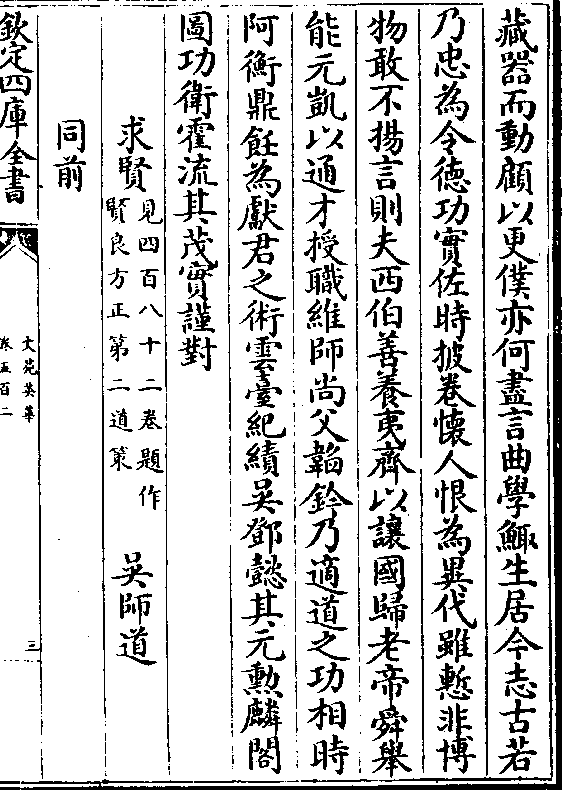 藏器而動顧以更僕亦何盡言曲學鯫生居今志古若
乃忠為令德功實佐時披卷懷人恨為異代雖慙非博
物敢不揚言則夫西伯善養夷齊以讓國歸老帝舜舉
能元凱以通才授職維師尚父韜鈐乃適道之功相時
阿衡鼎飪為獻君之術雲臺紀績吳鄧懿其元勳麟閣
圖功衛霍流其茂實謹對
求賢見四百八十二卷題作賢良方正第二道策 吳師道
同前
欽定四庫全書
文苑英華
卷五百二
三